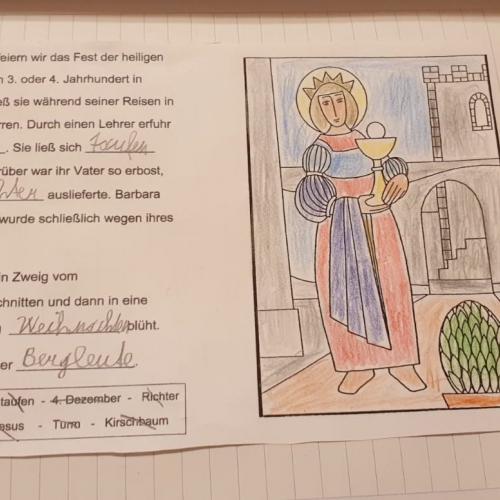 feiern wir das Fest der heiligen
3. oder 4. Jahrhundert in
ß sie während seiner Reisen in
rren. Durch einen Lehrer erfuhr
. Sie ließ sich taufen
rüber war ihr Vater so erbost,
hter auslieferte. Barbara
wurde schließlich wegen ihres
in Zweig vom
chnitten und dann in eine
Weihnachten blüht.
er Bergleute.
taufen - 4. Dezember - Richter
esus - Turm - Kirschbaum